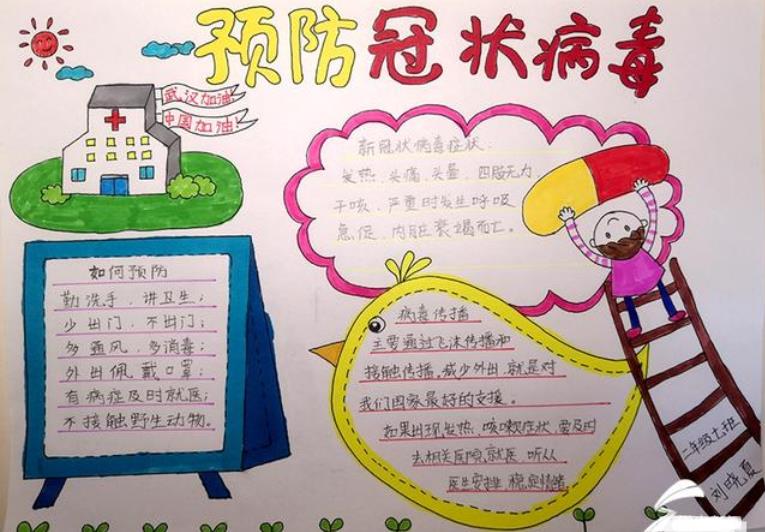 预防冠状病毒
武汉加油!
中国加油!
新冠状病毒症状:
发热、头痛、头晕、四肢无力、
干咳、严重时发生呼吸
急促、内脏衰竭而亡。
如何预防
勤洗手,讲卫生;
少出门,不出门;
多通风,多消毒;
外出佩戴口罩;
有病症及时就医;
不接触野生动物。
病毒传播
主要通过飞沫传播和
接触传播。减少外出,就是对
我们国家最好的支援。
如果出现发热、咳嗽症状,要及时
去相关医院就医,听从
医生安排,稳定情绪
二年级七班
刘晓夏